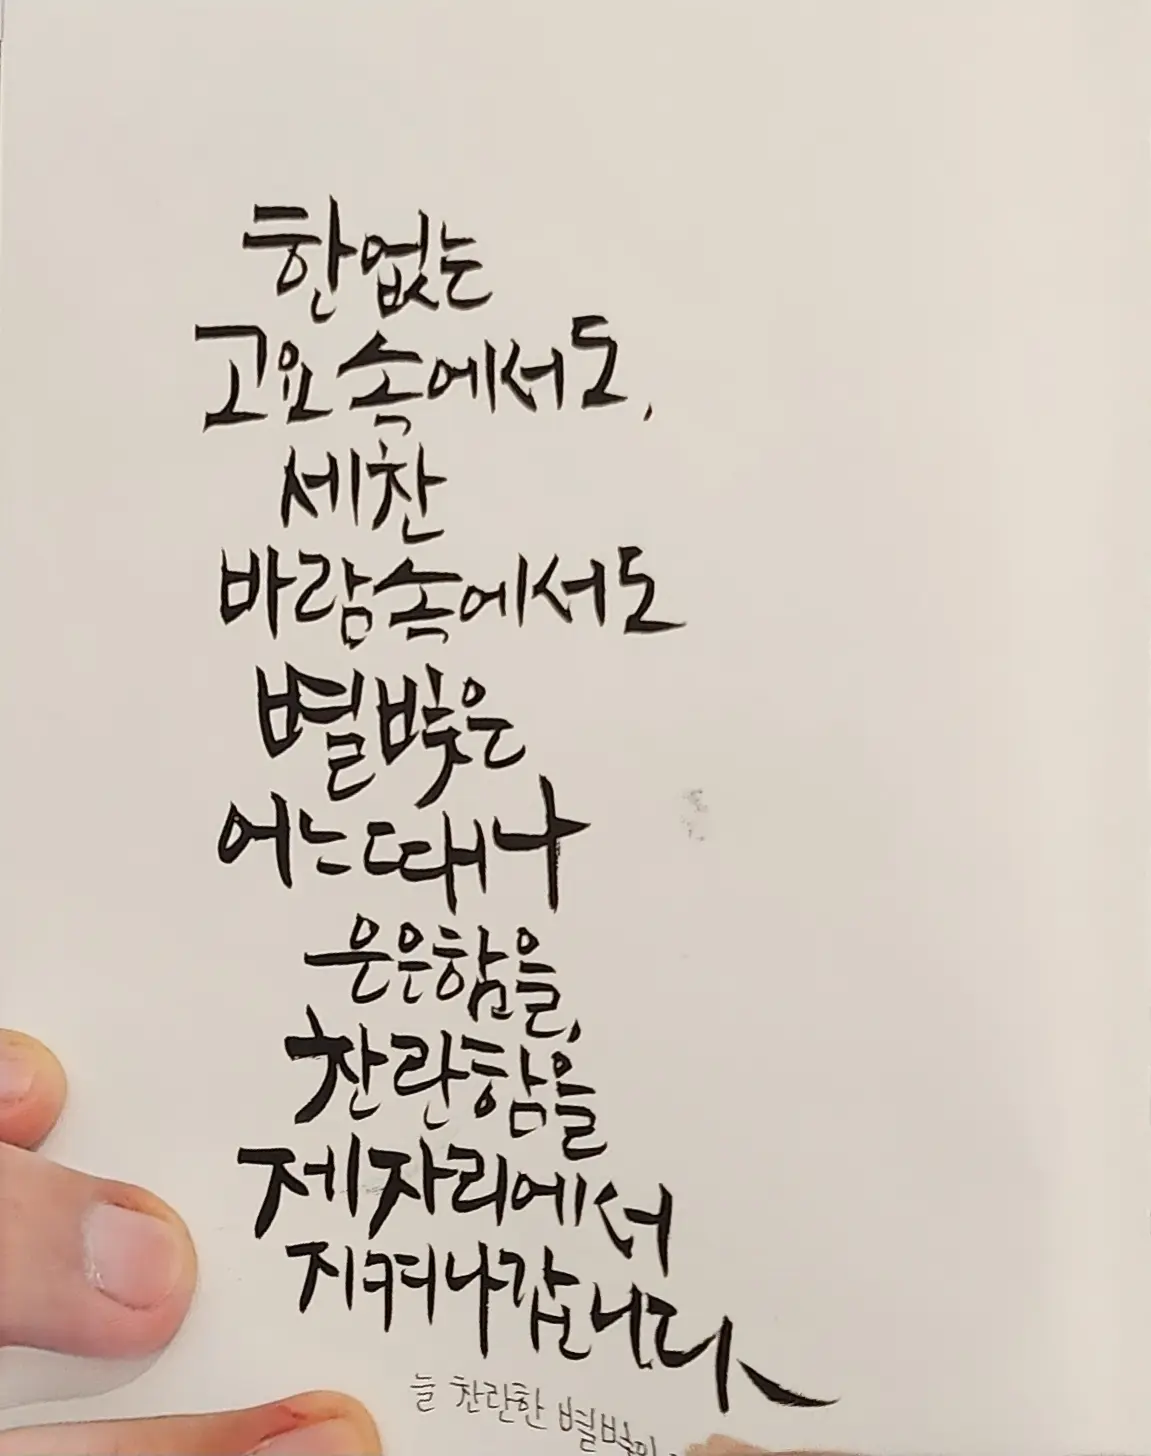 한없는
고요 속에서도,
세찬
바람 속에서도
별빛은
어느때나
은은함을,
찬란함을
제자리에서
지켜나갑니다
늘 찬란한